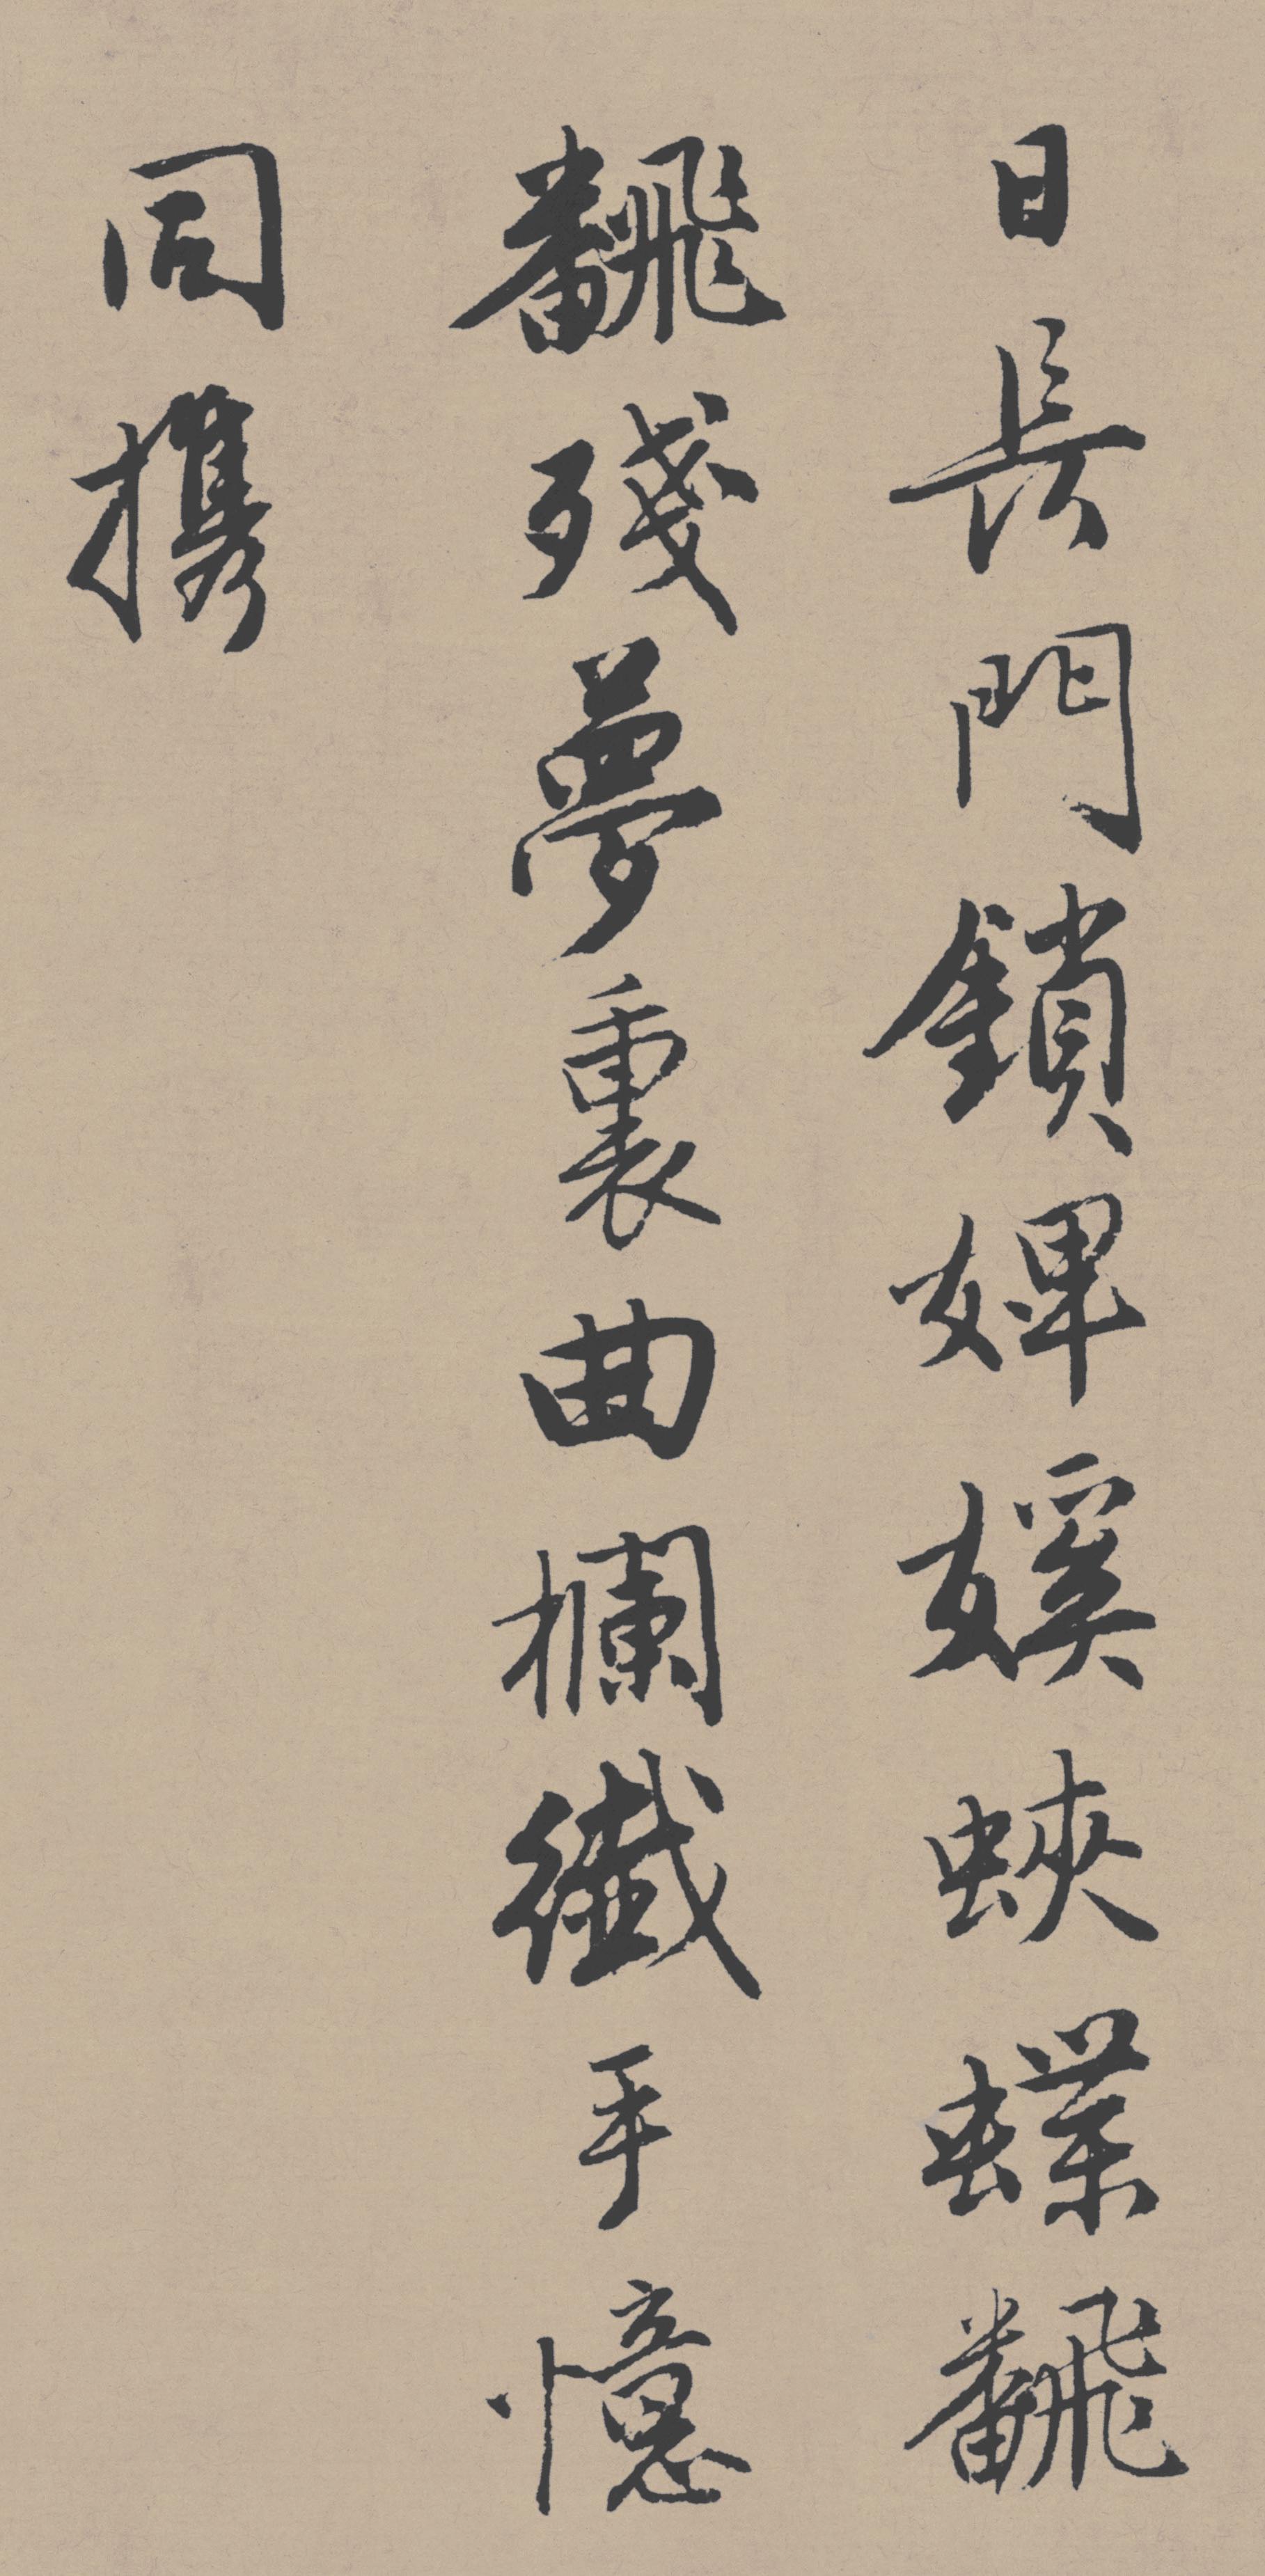 日長門鎖婢媛蛺蝶飜
飜殘夢裏曲欄纖手憶
同携